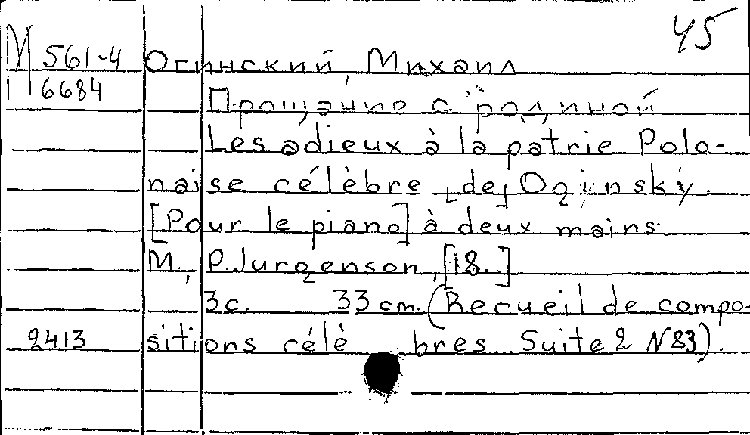 45
М 561-4 Огинский, Михаил
6684
Прощание с родиной
Les adieux à la patrie Polo-
naise célèbre [de] Oginsky.
[Pour le piano] à deux mains
M., P. Jurgenson, [18..]
3с. 33 cm. (Recueil de compo-
2413 sitions célè bres Suite 2 N 83).